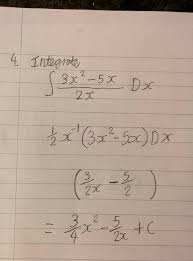 4. Integrate
∫ (3x² - 5x)/(2x) Dx
½ x⁻¹ (3x² - 5x) Dx
(3/(2x) - 5/2)
= 3/4 x² - 5/(2x) + C